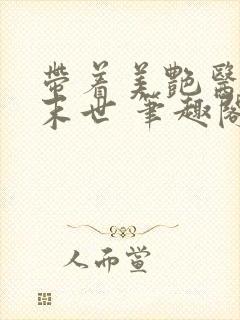 带着美艳医
末世 笔趣阁
人而萱